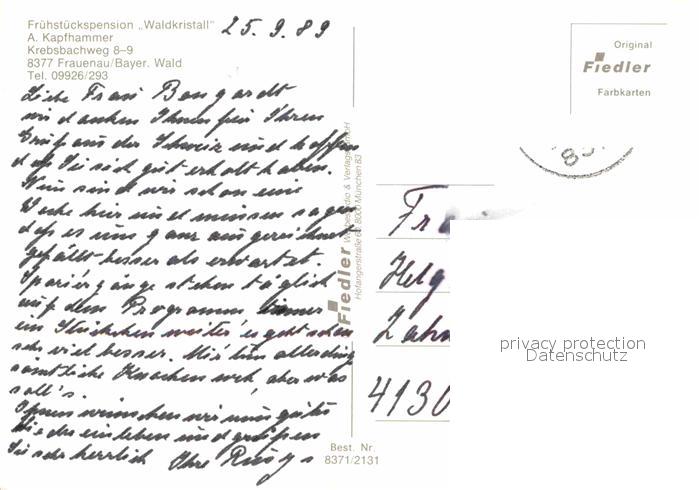 Frühstückspension „Waldkristall"
A. Kapfhammer
Krebsbachweg 8–9
8377 Frauenau/Bayer. Wald
Tel. 09926/293
25.9.89
Liebe Frau Bongardt
wir danken Ihnen für Ihren
Gruß aus der Schweiz und hoffen
daß Sie sich gut erholt haben.
Nun sind wir schon eine
Woche hier und müssen sagen
daß es uns ganz ausgezeichnet
gefällt besser als erwartet.
Spaziergänge stehen täglich
auf dem Programm immer
ein Stückchen weiter es geht schon
sehr viel besser. Mir tun allerding
sämtliche Knochen weh, aber was
soll's.
Ihnen wünschen wir gutes
und grüßen
Sie sehr herzlich Ihre
Fiedler Werbestudio & Verlags GmbH
Hofangerstraße 8000 München 83
Original
Fiedler
Farbkarten
Fra
Helg
Zahn
4130
privacy protection
Datenschutz
Best. Nr.
8371/2131